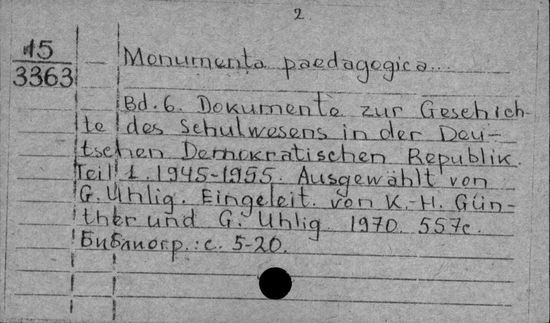 2
15
3363
Monumenta paedagogica...
Bd. 6. Dokumente zur Geschich-
te des Schulwesens in der Deu-
tschen Demokratischen Republik.
Teil 1. 1945-1955. Ausgewählt von
G. Uhlig. Eingeleit. von K.-H. Gün-
ther und G. Uhlig. 1970. 557c.
Библиогр.: с. 5-20.